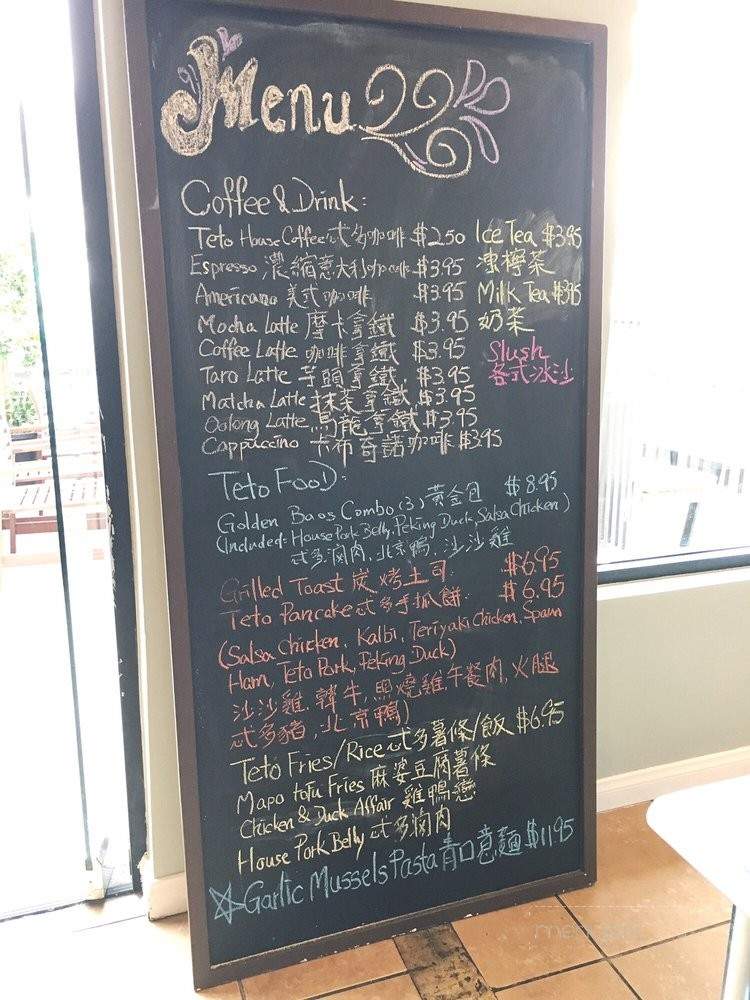 Menu
Coffee & Drink:
Teto House Coffee 式多咖啡 $2.50
Espresso 濃縮意大利咖啡 $3.95
Americano 美式咖啡 $3.95
Mocha Latte 摩卡拿鐵 $3.95
Coffee Latte 咖啡拿鐵 $3.95
Taro Latte 芋頭拿鐵 $3.95
Matcha Latte 抹茶拿鐵 $3.95
Oolong Latte 烏龍拿鐵 $3.95
Cappuccino 卡布奇諾咖啡 $3.95
Ice Tea $3.95
凍檸茶
Milk Tea $3.95
奶茶
Slush
各式冰沙
Teto Food:
Golden Baos Combo (3) 黃金包 $8.95
(Included: House Pork Belly, Peking Duck, Salsa Chicken)
式多滷肉, 北京鴨, 沙沙雞
Grilled Toast 炭烤土司 $6.95
Teto Pancake 式多手抓餅 $6.95
(Salsa Chicken, Kalbi, Teriyaki Chicken, Spam
Ham, Teto Pork, Peking Duck)
沙沙雞, 韓牛, 照燒雞, 午餐肉, 火腿
式多豬, 北京鴨)
Teto Fries/Rice 式多薯條/飯 $6.95
Mapo tofu Fries 麻婆豆腐薯條
Chicken & Duck Affair 雞鴨戀
House Pork Belly 式多滷肉
Garlic Mussels Pasta 青口意麵 $11.95